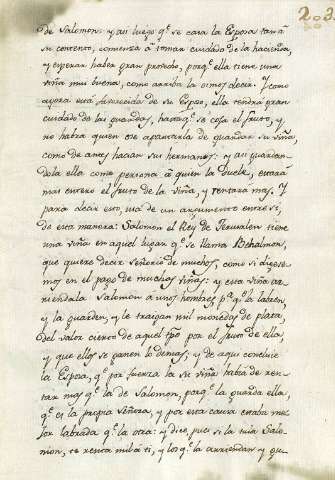 203
de Salomon: y asi luego qᵉ se casa la Esposa tan á
su contento, comienza á tomar cuidado de la hacienda,
y esperar haber gran provecho, porqᵉ ella tiene una
viña mui buena, como arriba la oimos decir. Y como
agora está favorecida de su Esposo, ella tendrá gran
cuidado de las guardas, hasta qᵉ se coja el fruto, y
no habrá quien ose apartarla de guardar su viña,
como de antes hacian sus hermanos: y asi guardan-
dola ella como persona á quien la duele, estará
mas entero el fruto de la viña, y rentará mas. Y
para decir esto, usa de un argumento entre sí,
de esta manera: Salomon el Rey de Jerusalen tiene
una viña en aquel lugar qᵉ se llama Behalmon,
que quiere decir señorio de muchos, como si digese-
mos en el pago de muchas viñas: y esta viña ar-
riendala Salomon á unos hombres, pᵃ qᵉ la labren,
y la guarden, y le traigan mil monedas de plata,
del valor cierto de aquel tpō por el fruto de ella,
y que ellos se ganen lo demas; y de aqui concluie
la Esposa, qᵉ por fuerza la su viña habrá de ren-
tar mas qᵉ la de Salomon, porqᵉ la guarda ella,
qᵉ es la propia Señora, y por esta causa estará me-
jor labrada qᵉ la otra: y dice, pues si la tuia Salo-
mon, te renta mil á ti, y los qᵉ la arriendan y gu-